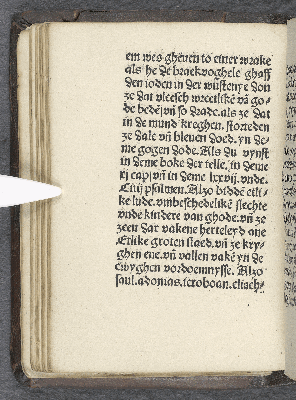 em wes gheven to einer wrake
als he dē brackvoghele ghaff
den ioden in der wůstenye don
ze dat vleesch weetlikē vā go-
de bedē vn̄ so drade. als ze dat
in de mund kreghen. storteden
ze dale vn̄ bleuen doed. yn de-
me gogen dode. Als du vynst
in deme boke der telle, in deme
xj cap vn̄ in deme lxxvij. vnde.
Ciiij psalmen. Alzo biddē etli-
ke lude. vmbeschedelikē slechte
vnde kindere van ghode. vn̄ ze
zeen dat vakene herteleyd ane
Etlike groten staed. vn̄ ze kry-
ghen ene. vn̄ vallen vakē yn de
ewyghen vordoemnysse. Alzo
saul. adonias. ieroboan. eliach-